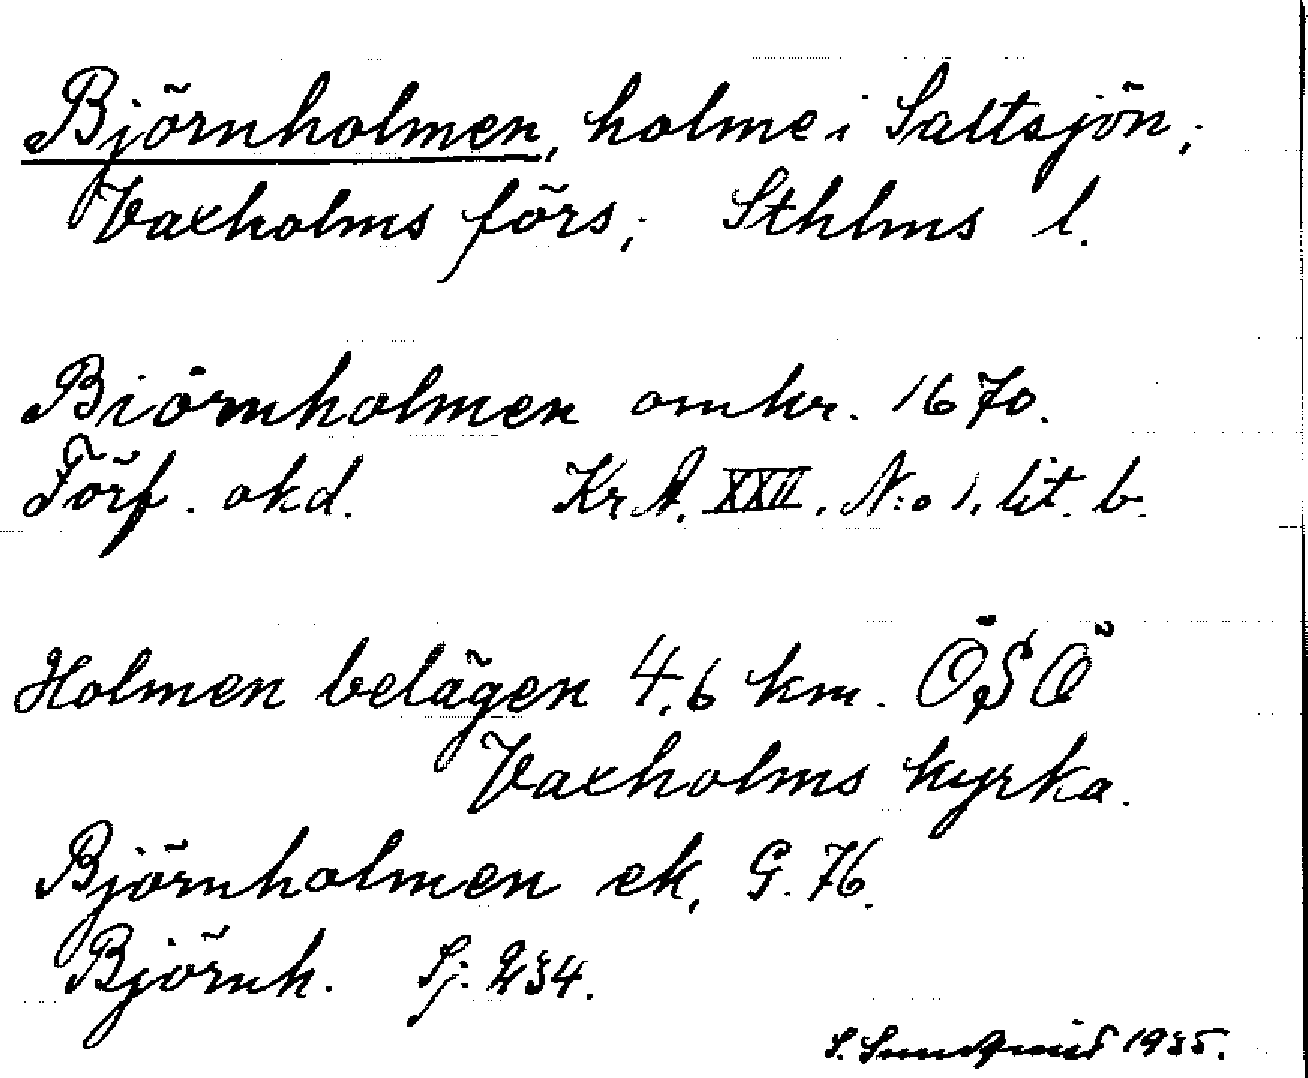 Björnholmen, holme i Saltsjön,
Vaxholms förs, Sthlms l.
Biörnholmen omkr. 1670.
Förf. okd. Kr. A. XXII. N:o 1, lit. b.
Holmen belägen 4,6 km. ÖSÖ
Vaxholms kyrka.
Björnholmen ek, G. 76.
Björnh. Sj. 234.
S. Sundqvist 1935.